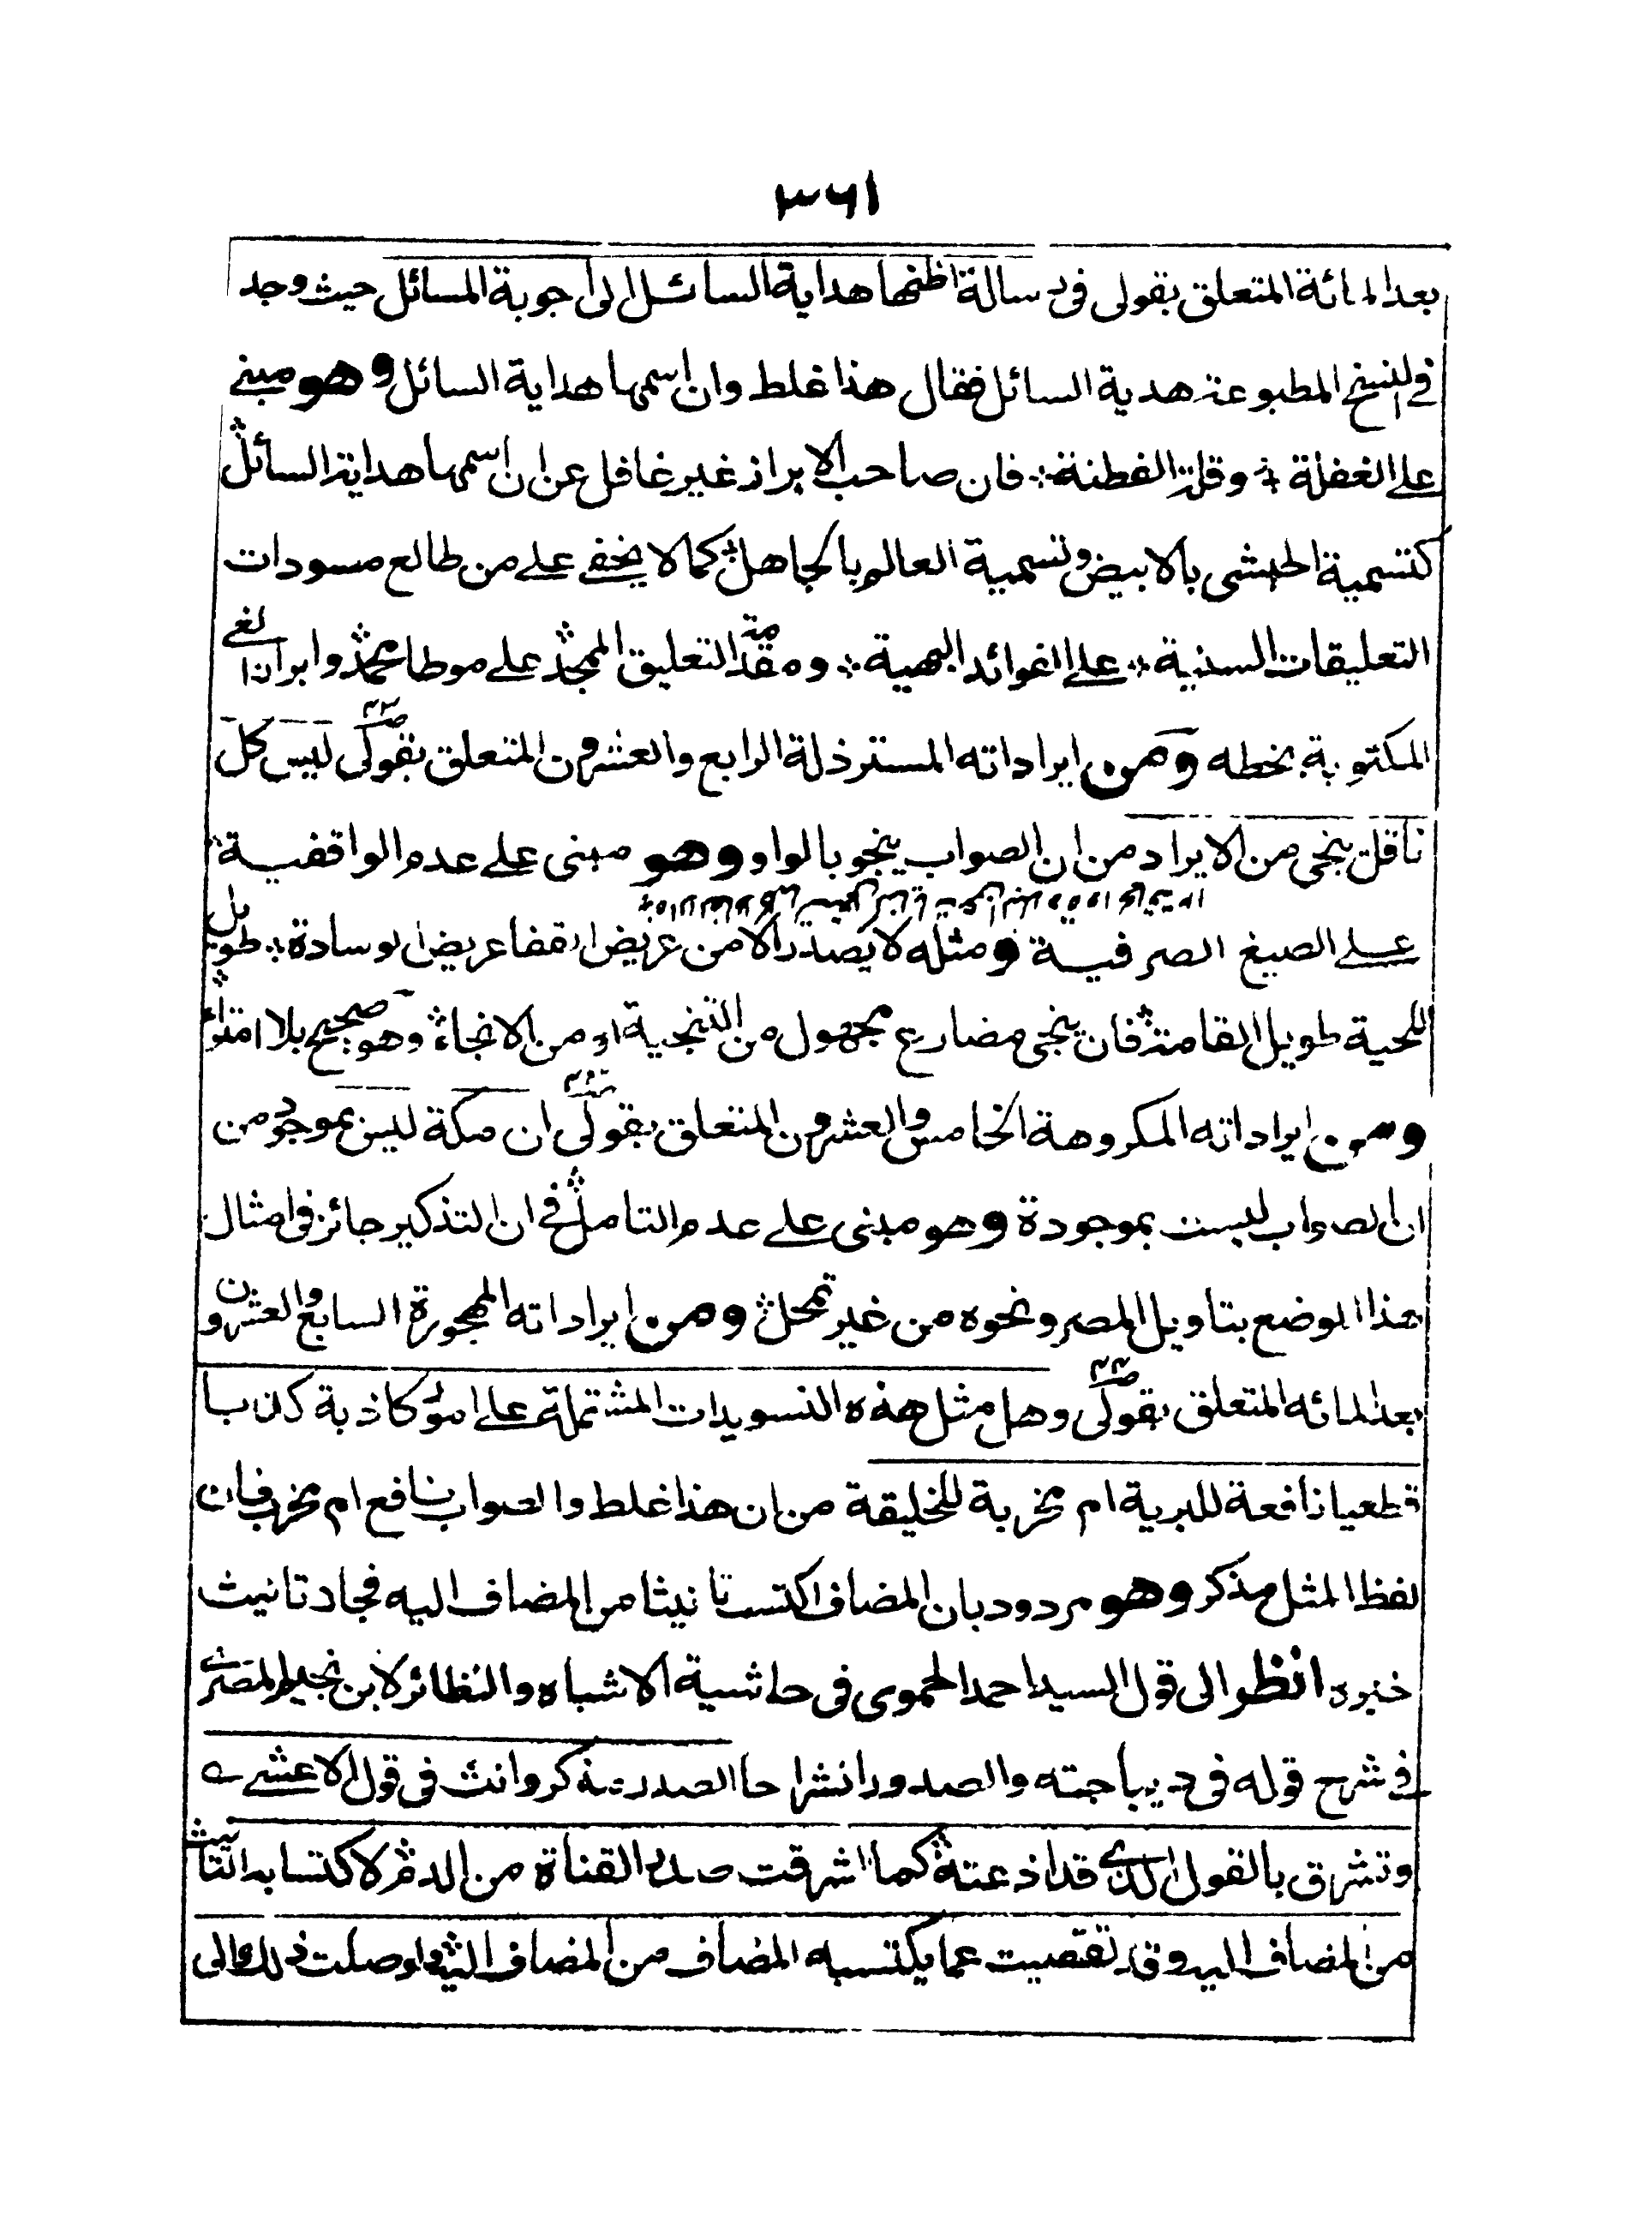 ٣٦١
بعد المائة المتعلق بقولى فى رسالة اظنها هداية السائل الى اجوبة المسائل حيث وجد
فى النسخ المطبوعة هدية السائل فقال هذا غلط وان اسمها هداية السائل وهو مبنى
على الغفلة وقلة الفطنة فان صاحب الابراز غير غافل عن ان اسمها هداية السائل
كتسمية الحبشى بالابيض وتسمية العالم بالجاهل كما لا يخفى على من طالع مسودات
التعليقات السنية على الفوائد البهية ومقدمة التعليق الممجد على موطا محمد وابراز الغى
المكتوبة بخطه ومن ايراداته المسترذلة الرابع والعشرون المتعلق بقولى ليس كل
ناقل ينجى من الايراد من ان الصواب ينجو بالواو وهو مبنى على عدم الواقفية
على الصيغ الصرفية ومثله لا يصدر الا من عريض القفا عريض الوسادة طويل
اللحية طويل القامة فان ينجى مضارع مجهول من التنجية او من الانجاء وهو صحيح بلا امتراء
ومن ايراداته المكروهة الخامس والعشرون المتعلق بقولى ان مكة ليس بموجود من
ان الصواب ليست بموجودة وهو مبنى على عدم التامل فى ان التذكير جائز فى امثال
هذا الموضع بتاويل المصر ونحوه من غير تمحل ومن ايراداته المهجورة السابع والعشرون
بعد المائه المتعلق بقولى وهل مثل هذه التسويدات المشتملة على امور كاذبة كذبا
قطعيا نافعة للبرية ام مخربة للخليقة من ان هذا غلط والصواب نافع ام مخرب فان
لفظ المثل مذكر وهو مردود بان المضاف اكتسب تانيثا من المضاف اليه فجاد تانيث
خبره انظر الى قول السيد احمد الحموى فى حاشية الاشباه والنظائر لابن نجيم المصرى
فى شرح قوله فى ديباجته والصدور انشراحا الصدر يذكر وانث فى قول الاعشى
وتشرق بالقول الذى قد اذعته كما شرقت صدر القناة من الدم لاكتسابه التانيث
من المضاف اليه وقد تقصيت عما يكتسبه المضاف من المضاف اليه واوصلت ذلك الى